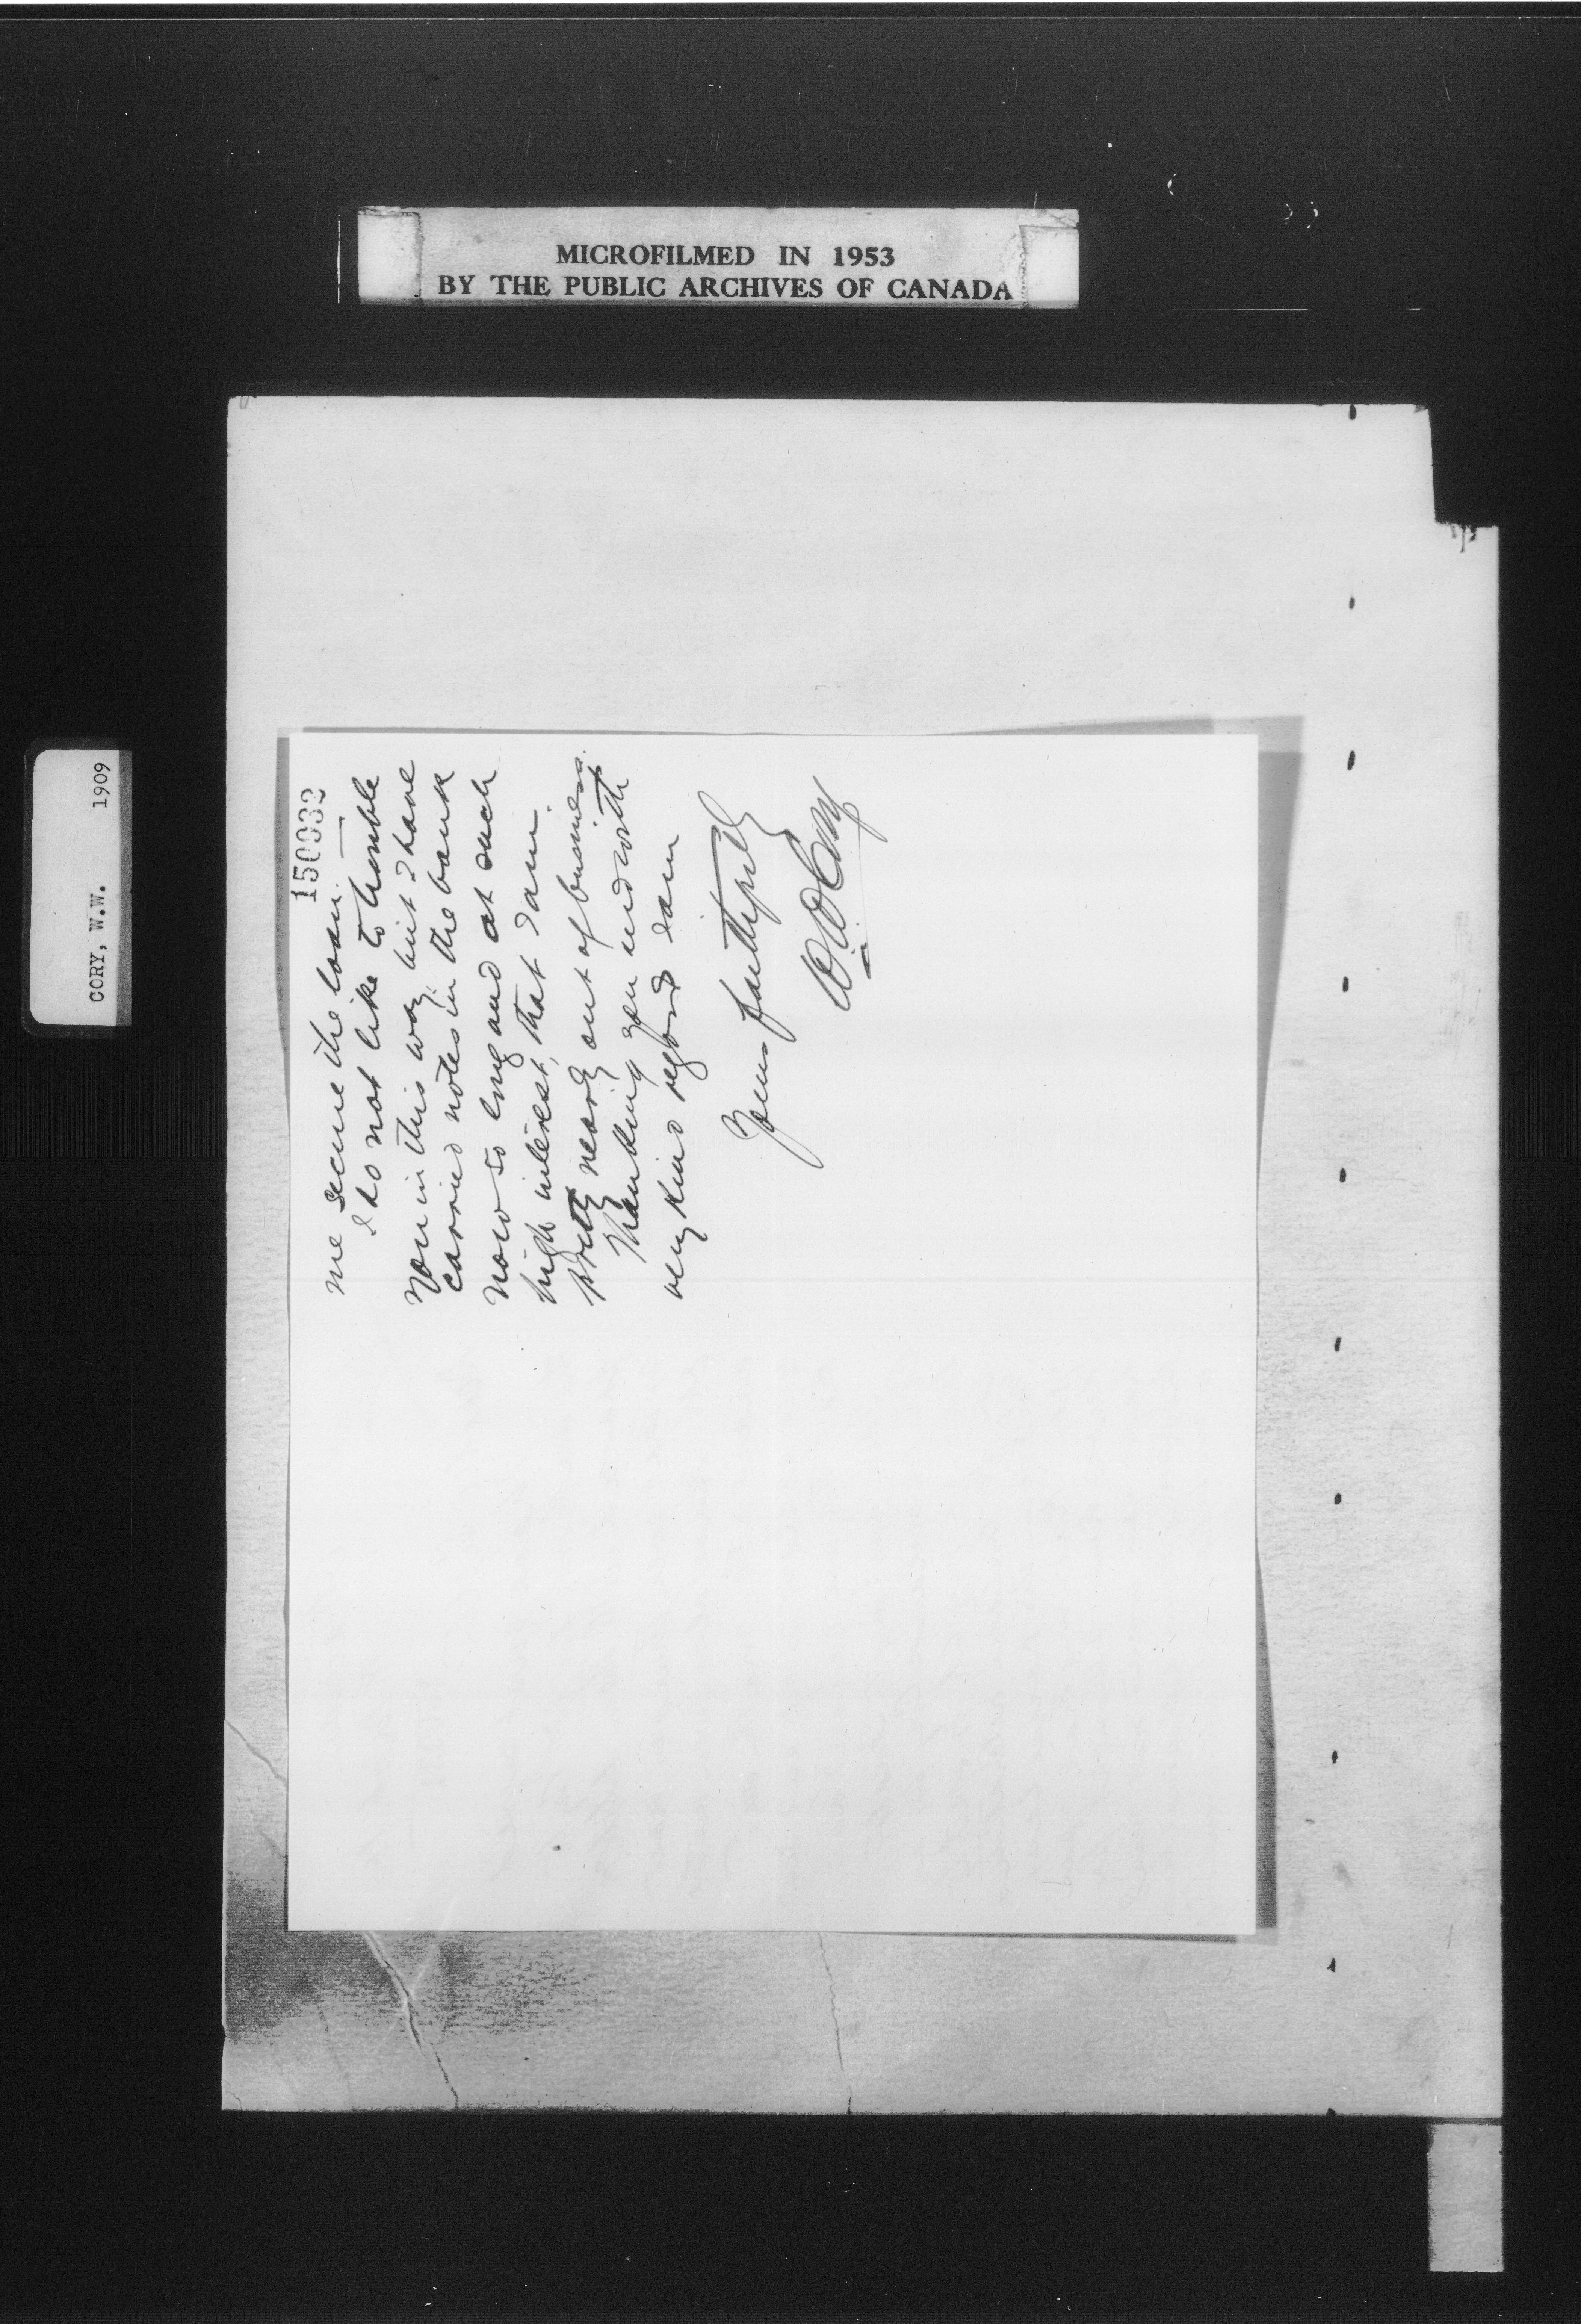 MICROFILMED IN 1953
BY THE PUBLIC ARCHIVES OF CANADA
CORY, W.W. 1909
150332
me secure the loan. —
I do not like to trouble
you in this way, but I have
carried notes in the bank
now so long and at such
high interest, that I am
pretty nearly out of business.
Thanking you and with
very kind regard I am
Yours faithfully
W.W. Cory